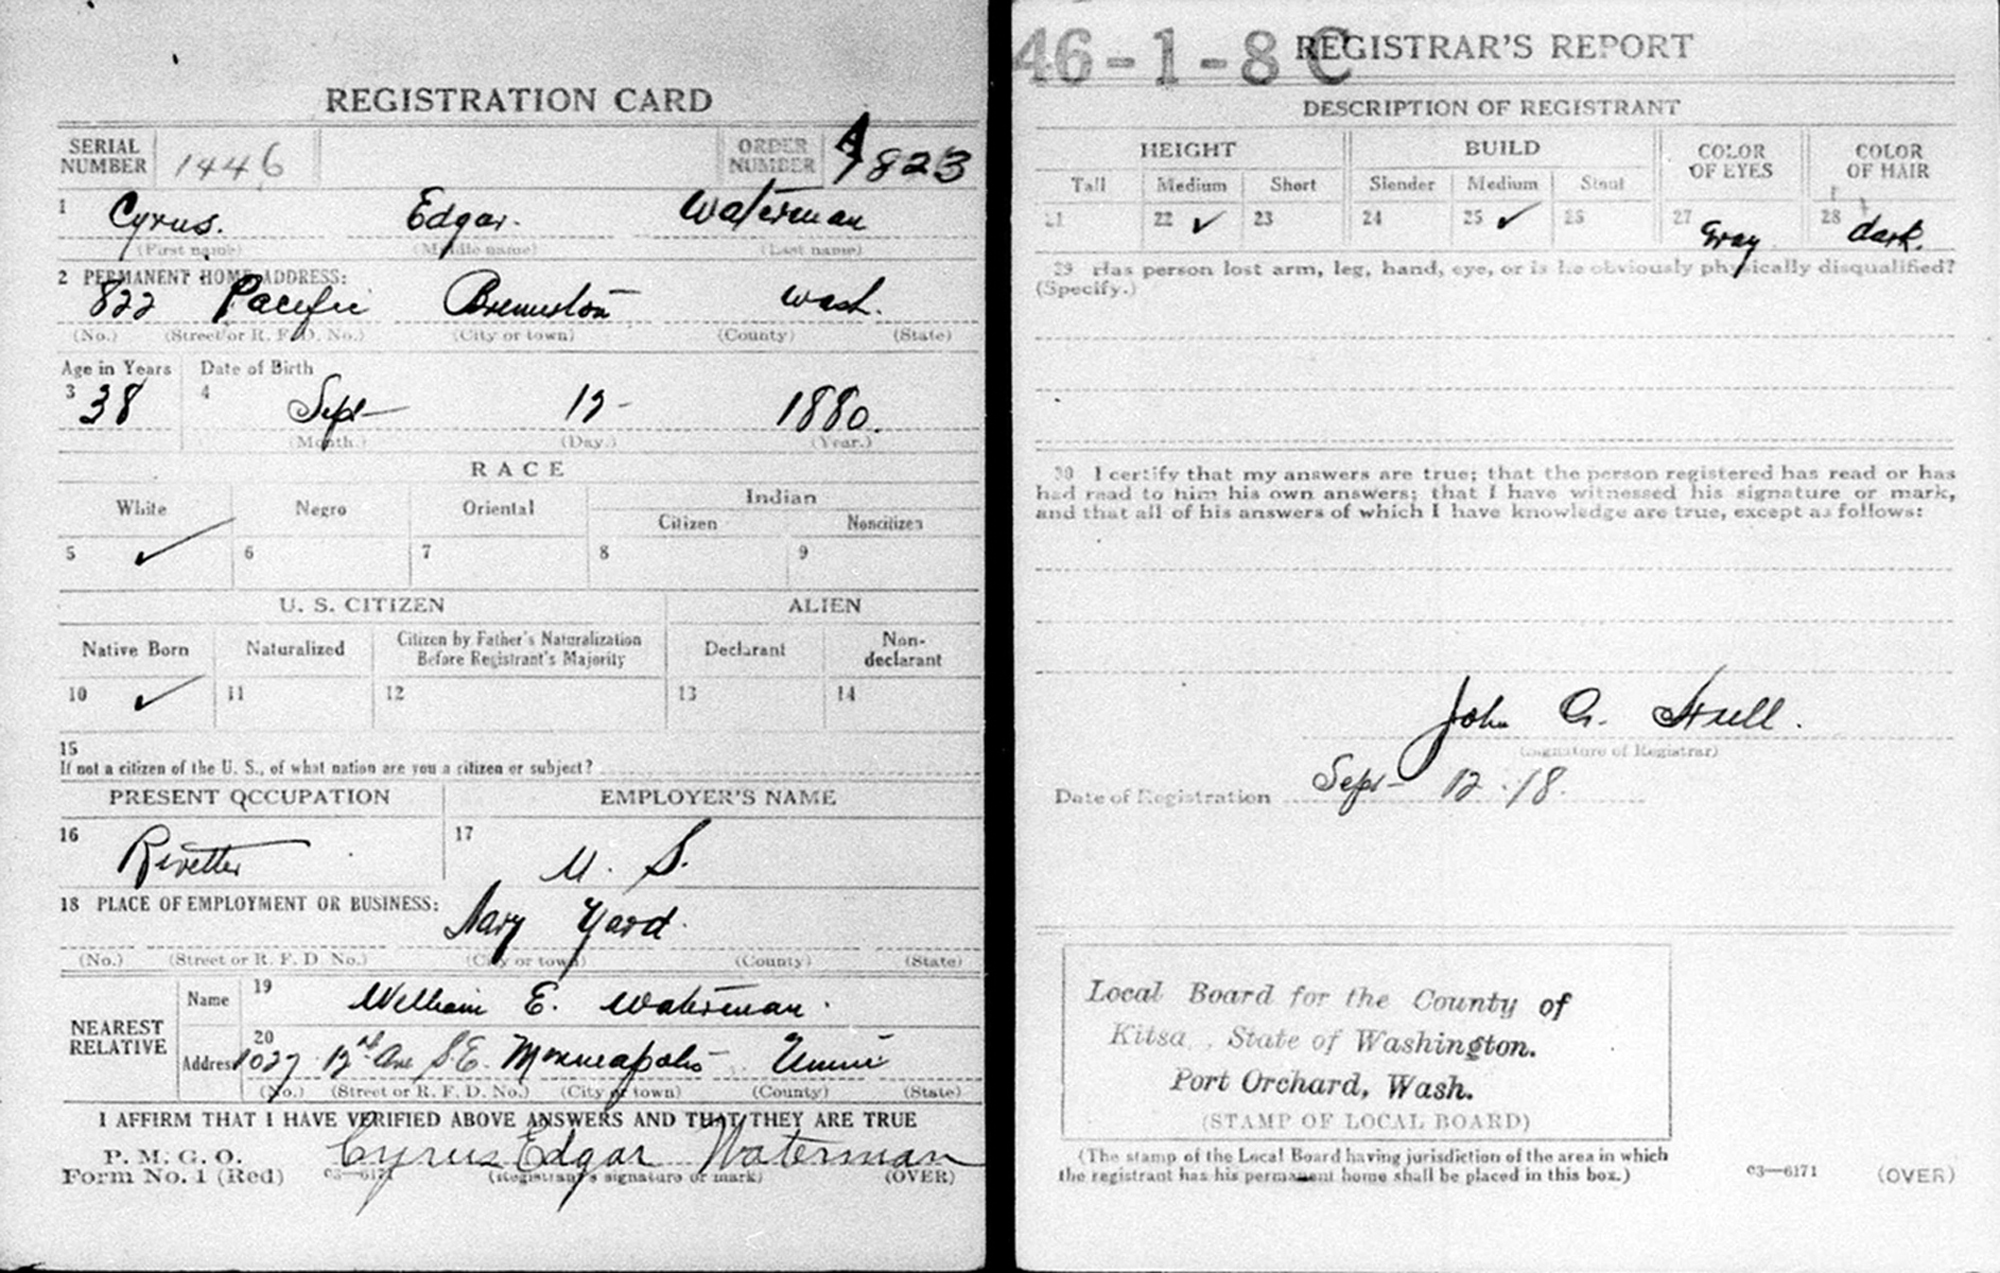 REGISTRATION CARD
SERIAL NUMBER 1446 ORDER NUMBER A 1823
1 Cyrus. Edgar. Waterman
(First name) (Middle name) (Last name)
2 PERMANENT HOME ADDRESS:
822 Pacific Bremerton Wash.
(No.) (Street or R. F. D. No.) (City or town) (County) (State)
Age in Years Date of Birth
3 38 4 Sept 12 1880.
(Month.) (Day.) (Year.)
RACE
White Negro Oriental Indian
Citizen Noncitizen
5 ✓ 6 7 8 9
U. S. CITIZEN ALIEN
Native Born Naturalized Citizen by Father's Naturalization Before Registrant's Majority Declarant Non-declarant
10 ✓ 11 12 13 14
15
If not a citizen of the U. S., of what nation are you a citizen or subject?
PRESENT OCCUPATION EMPLOYER'S NAME
16 Rivetter 17 U. S.
18 PLACE OF EMPLOYMENT OR BUSINESS:
Navy Yard.
(No.) (Street or R. F. D. No.) (City or town) (County) (State)
NEAREST RELATIVE
Name 19 William E. Waterman.
Address 20 1027 12th Ave S.E. Minneapolis Minn
(No.) (Street or R. F. D. No.) (City or town) (County) (State)
I AFFIRM THAT I HAVE VERIFIED ABOVE ANSWERS AND THAT THEY ARE TRUE
P. M. G. O.
Form No. 1 (Red) 03—6171 Cyrus Edgar Waterman
(Registrant's signature or mark) (OVER)
46-1-8 C REGISTRAR'S REPORT
DESCRIPTION OF REGISTRANT
HEIGHT BUILD COLOR OF EYES COLOR OF HAIR
Tall Medium Short Slender Medium Stout
21 22 ✓ 23 24 25 ✓ 26 27 Gray 28 dark.
29 Has person lost arm, leg, hand, eye, or is he obviously physically disqualified?
(Specify.)
30 I certify that my answers are true; that the person registered has read or has
had read to him his own answers; that I have witnessed his signature or mark,
and that all of his answers of which I have knowledge are true, except as follows:
John G. Hull.
(Signature of Registrar)
Date of Registration Sept 12 . 18.
Local Board for the County of
Kitsa , State of Washington.
Port Orchard, Wash.
(STAMP OF LOCAL BOARD)
(The stamp of the Local Board having jurisdiction of the area in which
the registrant has his permanent home shall be placed in this box.)
03—6171 (OVER)